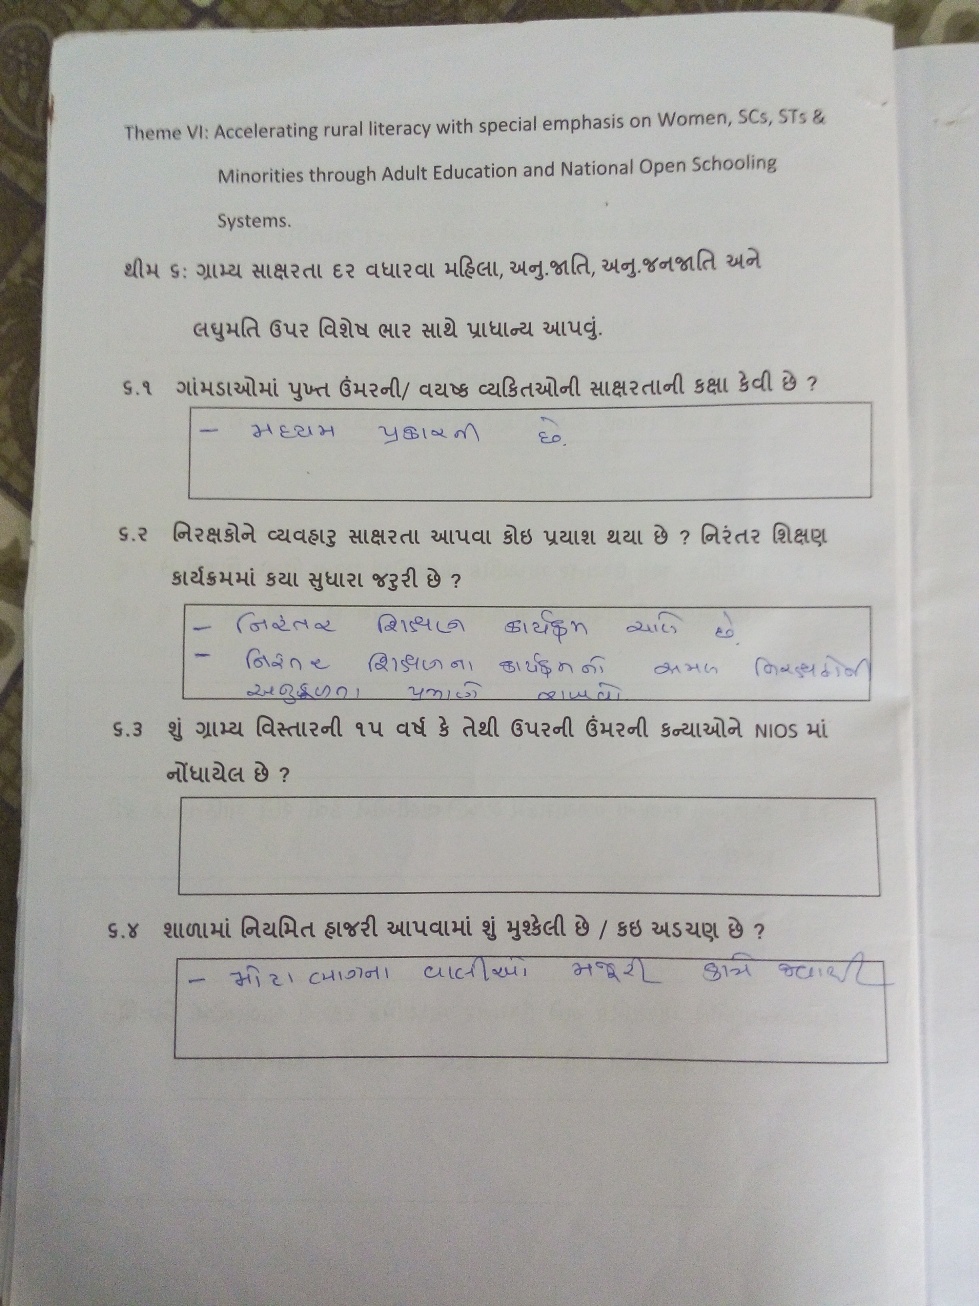 Theme VI: Accelerating rural literacy with special emphasis on Women, SCs, STs &
Minorities through Adult Education and National Open Schooling
Systems.
થીમ ૬: ગ્રામ્ય સાક્ષરતા દર વધારવા મહિલા, અનુ.જાતિ, અનુ.જનજાતિ અને
લઘુમતિ ઉપર વિશેષ ભાર સાથે પ્રાધાન્ય આપવું.
૬.૧ ગાંમડાઓમાં પુખ્ત ઉંમરની/ વયષ્ક વ્યકિતઓની સાક્ષરતાની કક્ષા કેવી છે ?
– મધ્યમ પ્રકારની છે.
૬.૨ નિરક્ષકોને વ્યવહારુ સાક્ષરતા આપવા કોઇ પ્રયાશ થયા છે ? નિરંતર શિક્ષણ
કાર્યક્રમમાં કયા સુધારા જરુરી છે ?
– નિરંતર શિક્ષણ કાર્યક્રમ ચાલે છે.
– નિરંતર શિક્ષણના કાર્યક્રમનો અમલ નિરક્ષકોની
અનુકૂળતા પ્રમાણે રાખવો
૬.૩ શું ગ્રામ્ય વિસ્તારની ૧૫ વર્ષ કે તેથી ઉપરની ઉંમરની કન્યાઓને NIOS માં
નોંધાયેલ છે ?
૬.૪ શાળામાં નિયમિત હાજરી આપવામાં શું મુશ્કેલી છે / કઇ અડચણ છે ?
– મોટા ભાગના વાલીઓ મજૂરી કામે જવાથી